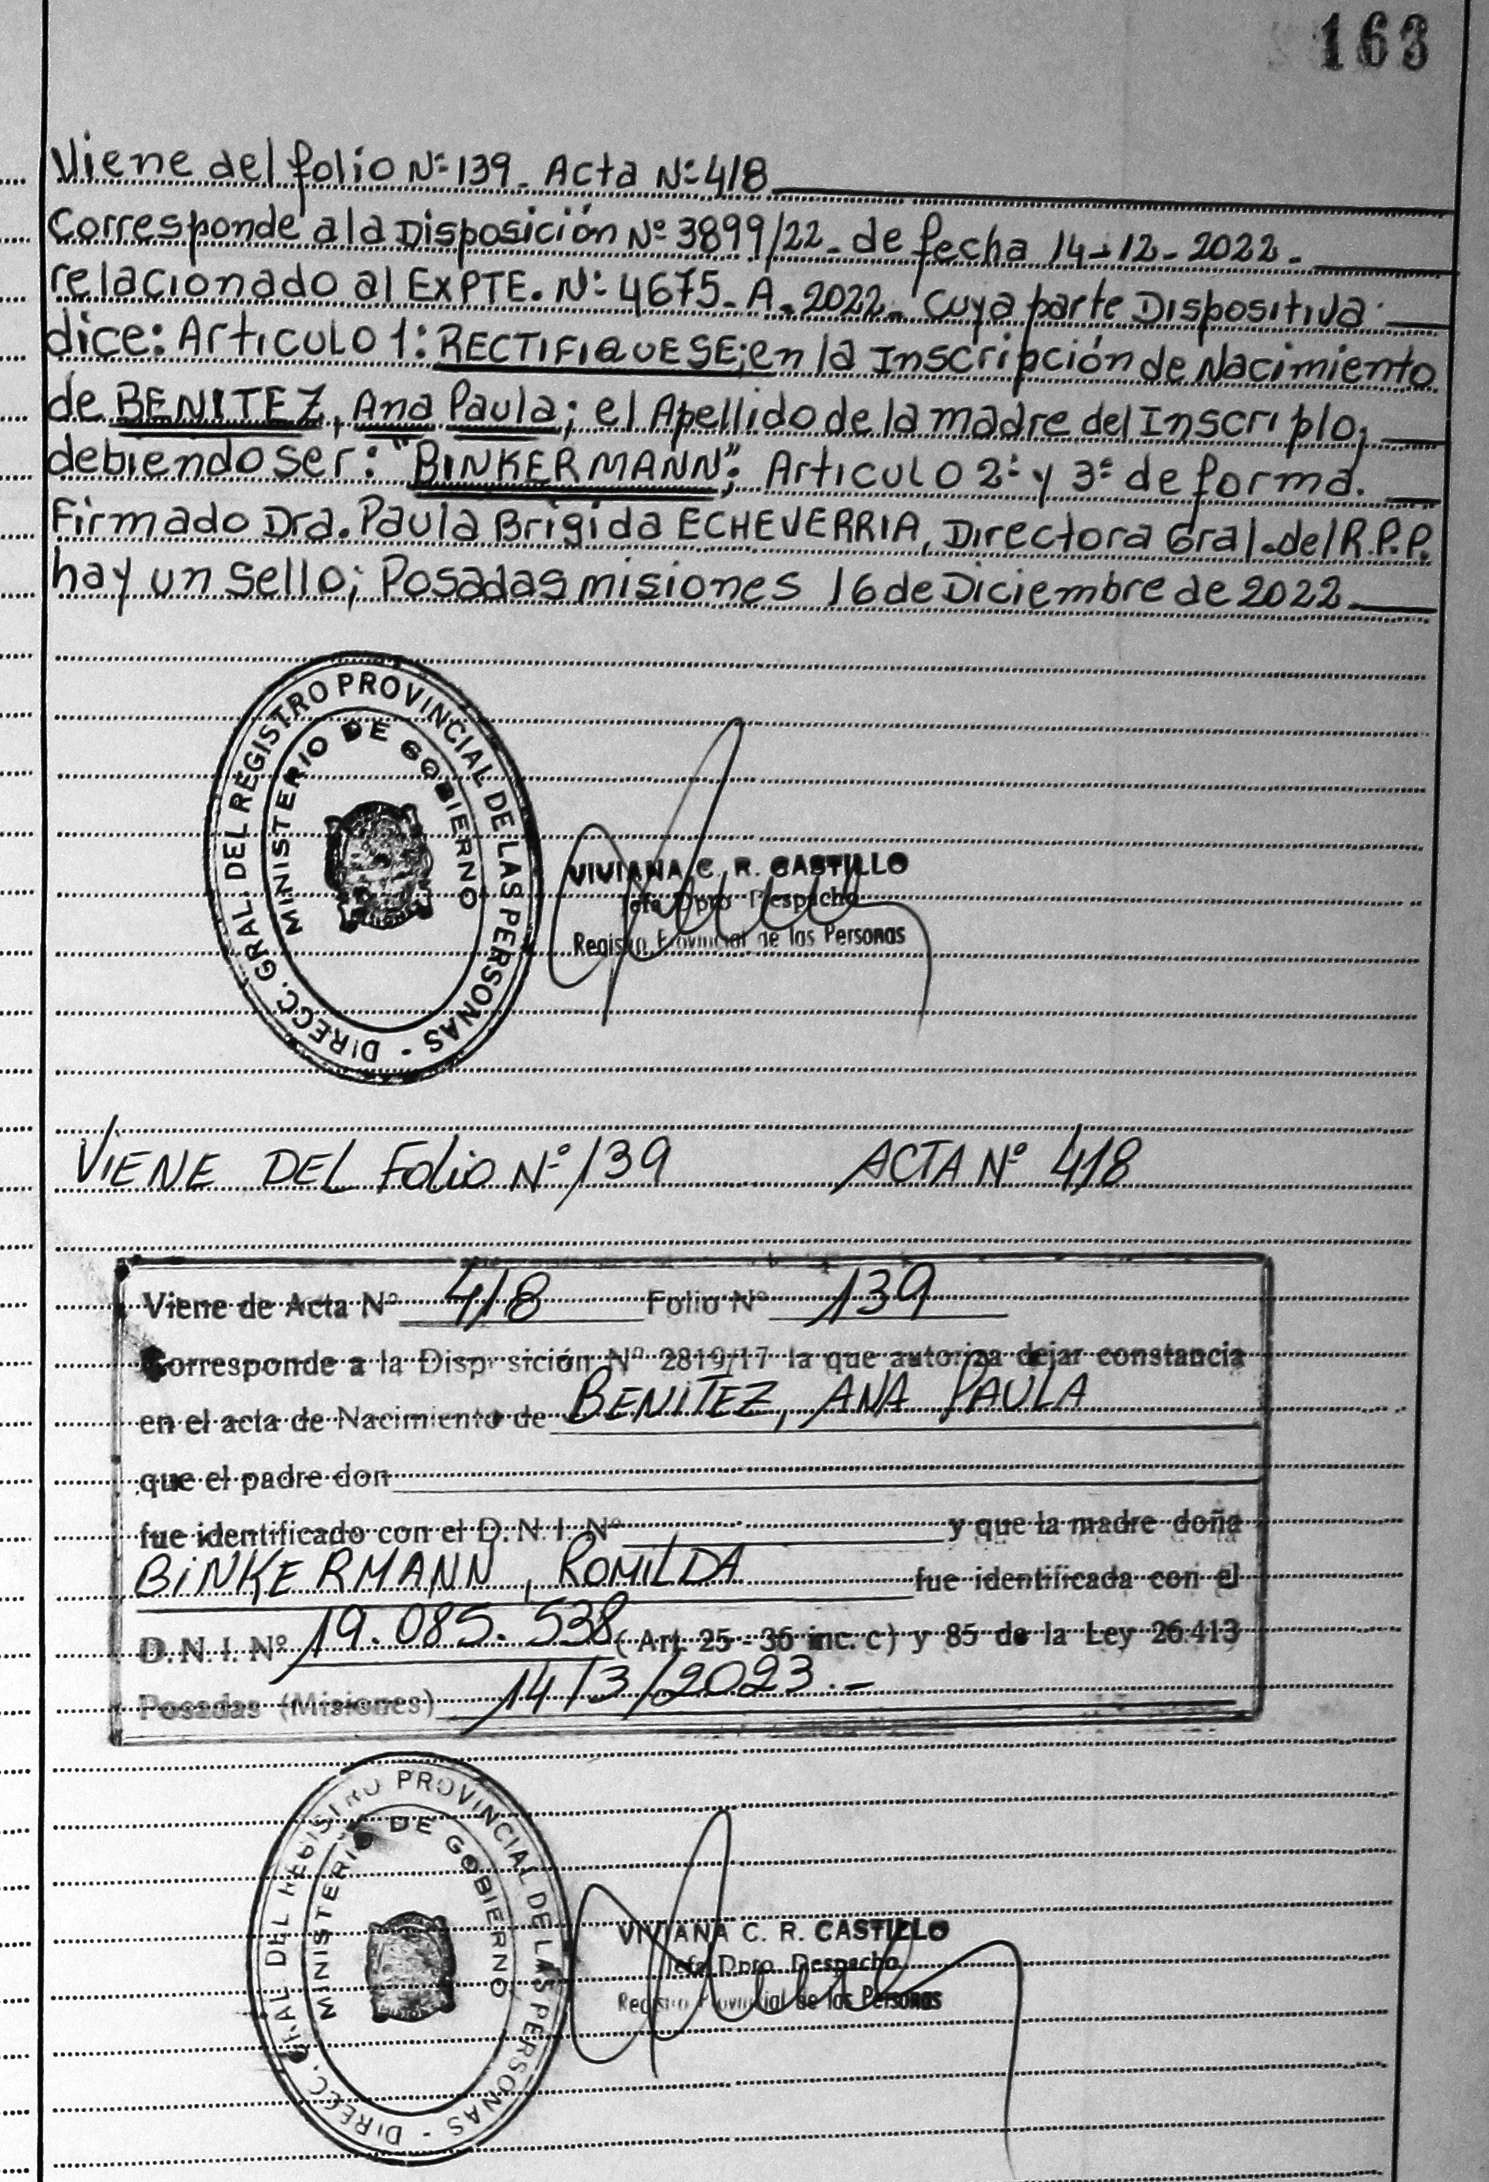 163
Viene del folio Nº 139. Acta Nº 418
Corresponde a la Disposición Nº 3899/22. de fecha 14-12-2022.
relacionado al EXPTE. Nº 4675-A-2022. cuya parte Dispositiva
dice: Articulo 1: RECTIFIQUESE; en la Inscripción de Nacimiento
de BENITEZ, Ana Paula; el Apellido de la madre del Inscripto,
debiendo ser: "BINKERMANN"; Articulo 2º y 3º de forma.
Firmado Dra. Paula Brigida ECHEVERRIA, Directora Gral. del R.P.P.
hay un Sello; Posadas misiones 16 de Diciembre de 2022
DIRECC. GRAL. DEL REGISTRO PROVINCIAL DE LAS PERSONAS -
MINISTERIO DE GOBIERNO
VIVIANA C. R. CASTILLO
Jefa Dpto Despacho
Registro Provincial de las Personas
VIENE DEL FOLIO Nº 139 ACTA Nº 418
Viene de Acta Nº 418 Folio Nº 139
Corresponde a la Disposición Nº 2819/17 la que autoriza dejar constancia
en el acta de Nacimiento de BENITEZ, ANA PAULA
que el padre don
fue identificado con el D. N. I. Nº y que la madre doña
BINKERMANN, ROMILDA fue identificada con el
D. N. I. Nº 19.085.538 (Art. 25 - 36 inc. c) y 85 de la Ley 26.413
Posadas (Misiones) 14/3/2023.-
DIRECC. GRAL DEL REGISTRO PROVINCIAL DE LAS PERSONAS -
MINISTERIO DE GOBIERNO
VIVIANA C. R. CASTILLO
Jefa Dpto Despacho
Registro Provincial de las Personas